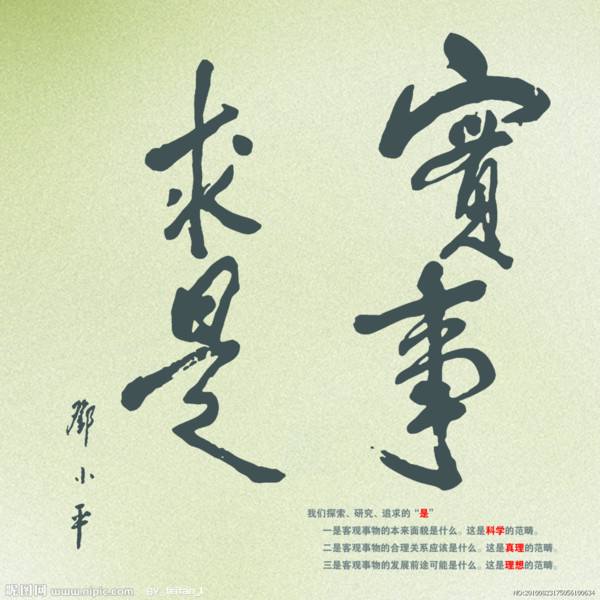 實事
求是
鄧小平
我们探索、研究、追求的“是”
一是客观事物的本来面貌是什么。这是科学的范畴。
二是客观事物的合理关系应该是什么。这是真理的范畴。
三是客观事物的发展前途可能是什么。这是理想的范畴。
昵图网 www.nipic.com by_feifan_1
NO:20100823175056100634